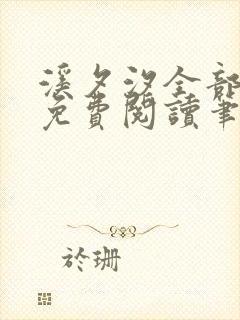 溪夕汐全部
免費閱讀筆
於珊